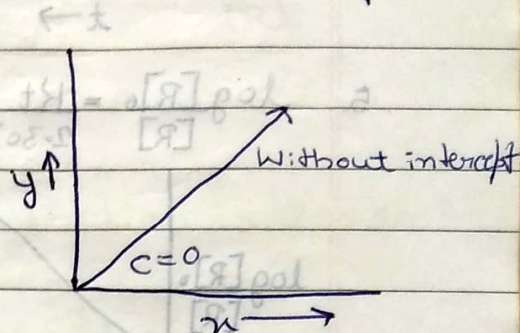 Without intercept
y↑
c=0
x →